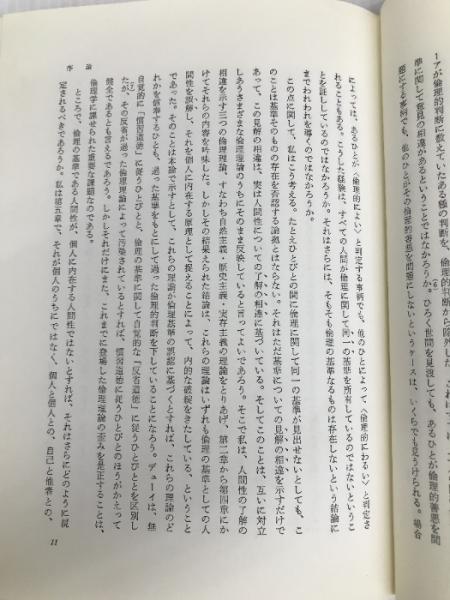 ーアが倫理的判断に数えていたある種の判断を、倫理的判断から除外した
準に関して意見の相違があるということではなかろうか。ひろく世間を見渡しても、あるひとが倫理的善悪を問
題にする事柄でも、他のひとがその倫理的善悪を問題にしないというケースは、いくらでも見うけられる。場合
序論
によっては、あるひとが〈倫理的によい〉と判定する事柄でも、他のひとによって、〈倫理的にわるい〉と判定さ
れることもある。こうした経験は、すべての人間が倫理に関して同一の基準を所有しているのではないというこ
とを証しているのではなかろうか。それはさらには、そもそも倫理の基準なるものは存在しないという結論に
までわれわれを導くのではなかろうか。
この点に関して、私はこう考える。たとえひとびとの間に倫理に関して同一の基準が見出せないとしても、こ
のことは基準そのものの存在を否認する論拠とはならない。それはただ基準についての見解の相違を示すだけで
あって、この見解の相違は、実は人間性についての了解の相違に基づいている。そしてこのことは、互いに対立
しあうさまざまな倫理理論のうちにそのまま反映していると言ってよいであろう。そこで私は、人間性の了解の
相違を示す三つの倫理理論、すなわち自然主義・歴史主義・実存主義の理論をとりあげ、第二章から第四章にか
けてそれらの内容を吟味した。しかしその結果えられた結論は、これらの理論はいずれも倫理の基準としての人
間性を誤解し、それを個人に内在する原理として捉えることによって、内的な破綻をきたしている、ということ
であった。そのことは本論で示すとして、これらの理論が倫理基準の誤認に基づくとすれば、これらの理論のど
れかを信奉するひとも、過った基準をもとにして過った倫理的判断を下していることになろう。デューイは、無
自覚的に「慣習道徳」に従うひとびとと、倫理の基準に関して自覚的な「反省道徳」に従うひとびととを区別し
たが、その反省が過った倫理理論によって汚染されているとすれば、慣習道徳に従うひとびとのほうがかえって
健全であるとも言えるであろう。しかしそれだけにまた、これまでに登場した倫理理論の歪みを是正することは、
倫理学に課せられた重要な課題なのである。
ところで、倫理の基準である人間性が、個人に内在する人間性ではないとすれば、それはさらにどのように規
定されるべきであろうか。私は第五章で、それが個人のうちにではなく、個人と個人との、自己と他者との、
11